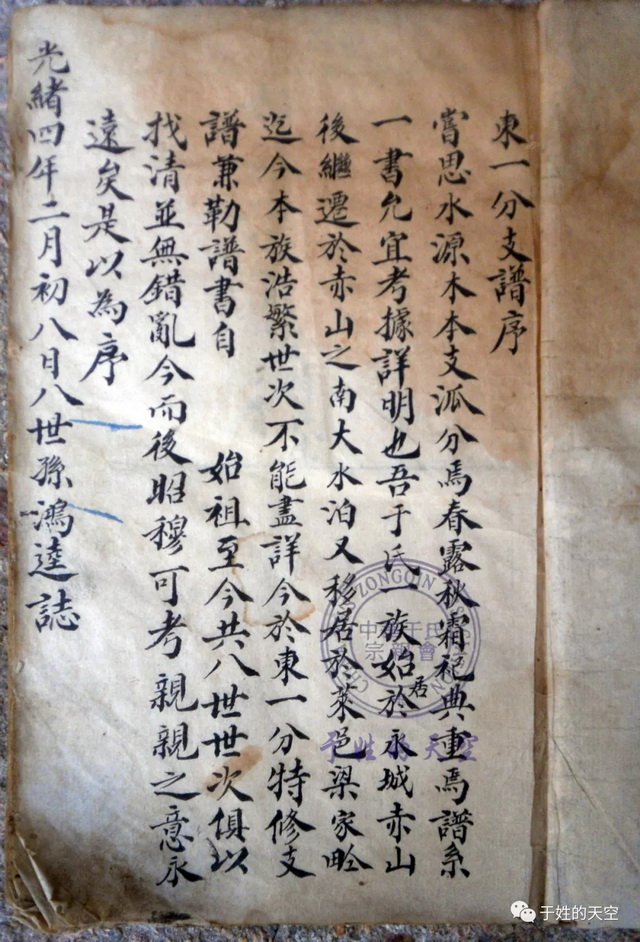 東一分支譜序
嘗思水源木本支泒分焉春露秋霜祀典重焉譜系
一書允宜考據詳明也吾于氏一族始居於永城赤山
後繼遷於赤山之南大水泊又移居於萊邑梁家畛
迄今本族浩繁世次不能盡詳今於東一分特修支
譜兼勒譜書自 始祖至今共八世世次俱以
找清並無錯亂今而後昭穆可考親親之意永
遠矣是以為序
光緒四年二月初八日八世孫鴻逵誌
ZONGQIN
于姓的天空
于姓的天空